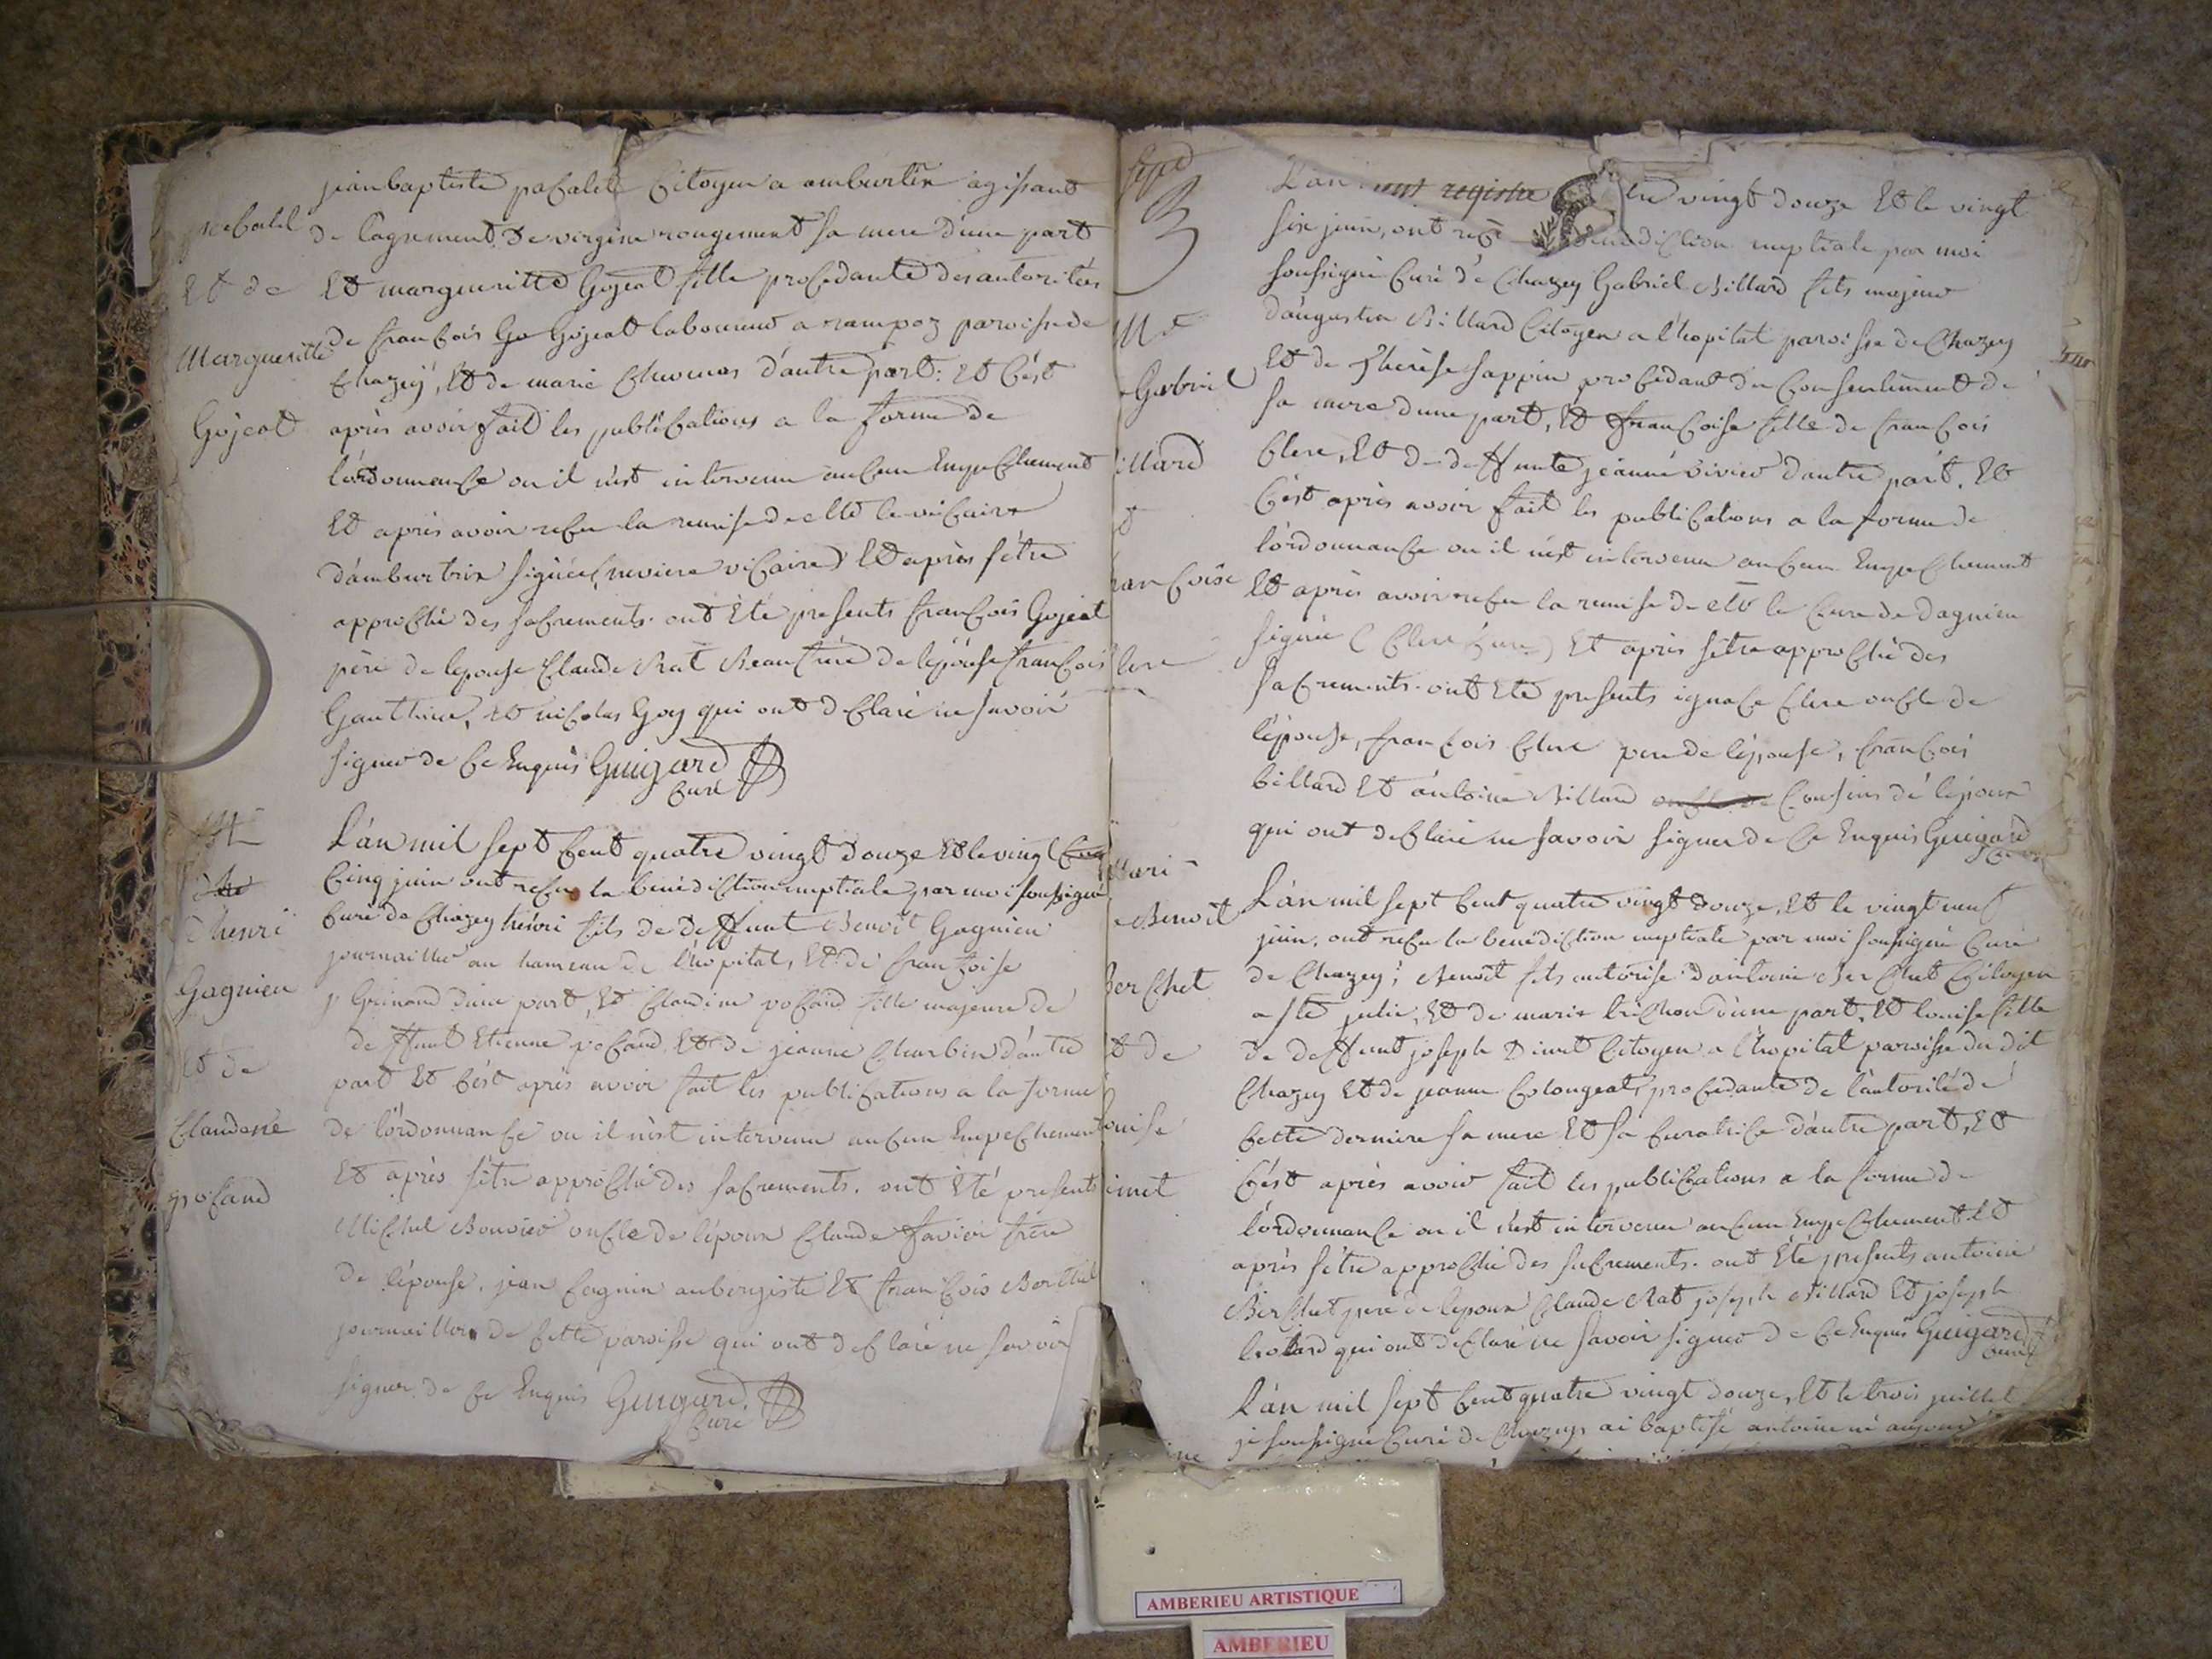 jeanbaptiste pacalet Citoyen a amburtrix agissant
de l'agrement de virginie rougemont sa mere d'une part
Et margueritte Gojeat fille procedante des autoritées
de francois Go Gojeat laboureur a rampoz paroisse de
Chazey, Et de marie Chuomas d'autre part: et C'ést
après avoir fait les publications a la forme de
l'órdonnance ou il n'est intervenu aucun Empechement
Et aprés avoir recu la remise de   le vicaire
d'amburtrix signée (  vicaire) Et après s'être
approché des sacrements. ont Eté presents francois Gojeat
père de lepouse Claude Rat Beaufrère de lépouse francois
Gauthier, et nicolas Goy qui ont declaré ne savoir
signer de Ce Enquis Guigard
Curé
pacalet
Et de
Margueritte
Gojeat
L'án mil sept Cent quatre vingt douze Et le vingt Cinq
Cinq juin ont recu la bénédiction nuptiale par moi soussigné
Curé de Chazey hénri fils de deffunt Benoit Gagnieu
journaillier au hameau de l'hopital, Et de francoise
Grinand d'une part, Et Claudine pocand fille majeure de
deffunt Etienne pocand Et de jeanne Charbin d'autre
part Et C'ést après avoir fait les publications a la forme
de l'órdonnance ou il n'ést intervenu aucun Empechement
Et après s'être approché des sacrements. ont Eté presents
Michel Bouvier oncle de l'époux Claude favier frère
de l'épouse. jean Cagnin aubergiste Et francois Berthet
journaillier de Cette paroisse qui ont declaré ne savoir
signer de Ce Enquis Guigard
Curé
M
d'hénri
Gagnieu
Et de
Claudine
pocand
sept
L'an   registre   vingt douze Et le vingt
sixe juin, ont recu   bénédiction nuptiale par moi
soussigné Curé de Chazey Gabriel Billard fils majeur
d'augustin Billard Citoyen a l'hopital paroisse de Chazey
Et de Therèse sappin procedant du Consentement de
sa mere d'une part, Et francoise fille de francois
Clere, Et de deffunte jeanne Vivier d'autre part, Et
C'ést après avoir fait les publications a la forme de
l'órdonnance ou il n'ést intervenu aucun Empechement
Et après avoir recu la remise de   le Curé de Dagnieu
signée ( Clere Curé ) Et après s'être approché des
sacrements. ont Eté presents ignace Clere oncle de
l'épouse, francois Clere pere de l'épouse, francois
billard Et antoine Billard oncle de Cousins de l'époux
qui ont declaré ne savoir signer de Ce Enquis Guigard
Curé
M
Gabriel
illard
t
rancoise
lere
L'án mil sept Cent quatre vingt douze, Et le vingt neuf
juin, ont recu la bénédiction nuptiale par moi soussigné Curé
de Chazey; Benoit fils autorise d'antoine Berchet Citoyen
a ste julie, Et de marie trichon d'une part, Et louise fille
de deffunt joseph Dimet Citoyen a l'hopital paroisse du dit
Chazey Et de jeanne Colongeat, procedante de l'autorité de
Cette derniere sa mere Et sa Curatrice d'autre part, Et
C'ést après avoir fait les publications a la forme de
l'órdonnance ou il n'ést intervenu aucun Empechement Et
après s'être approché des sacrements. ont Eté presents antoine
Berchet pere de lepoux Claude Rat joseph Billard Et joseph
  qui ont declaré ne savoir signer de Ce Enquis Guigard
Curé
Mari
Benoit
Berchet
t de
ouise
imet
L'án mil sept Cent quatre vingt douze, Et le trois juillet
je soussigné Curé de Chazey ai baptisé antoine né
ine
AMBERIEU ARTISTIQUE
AMBERIEU